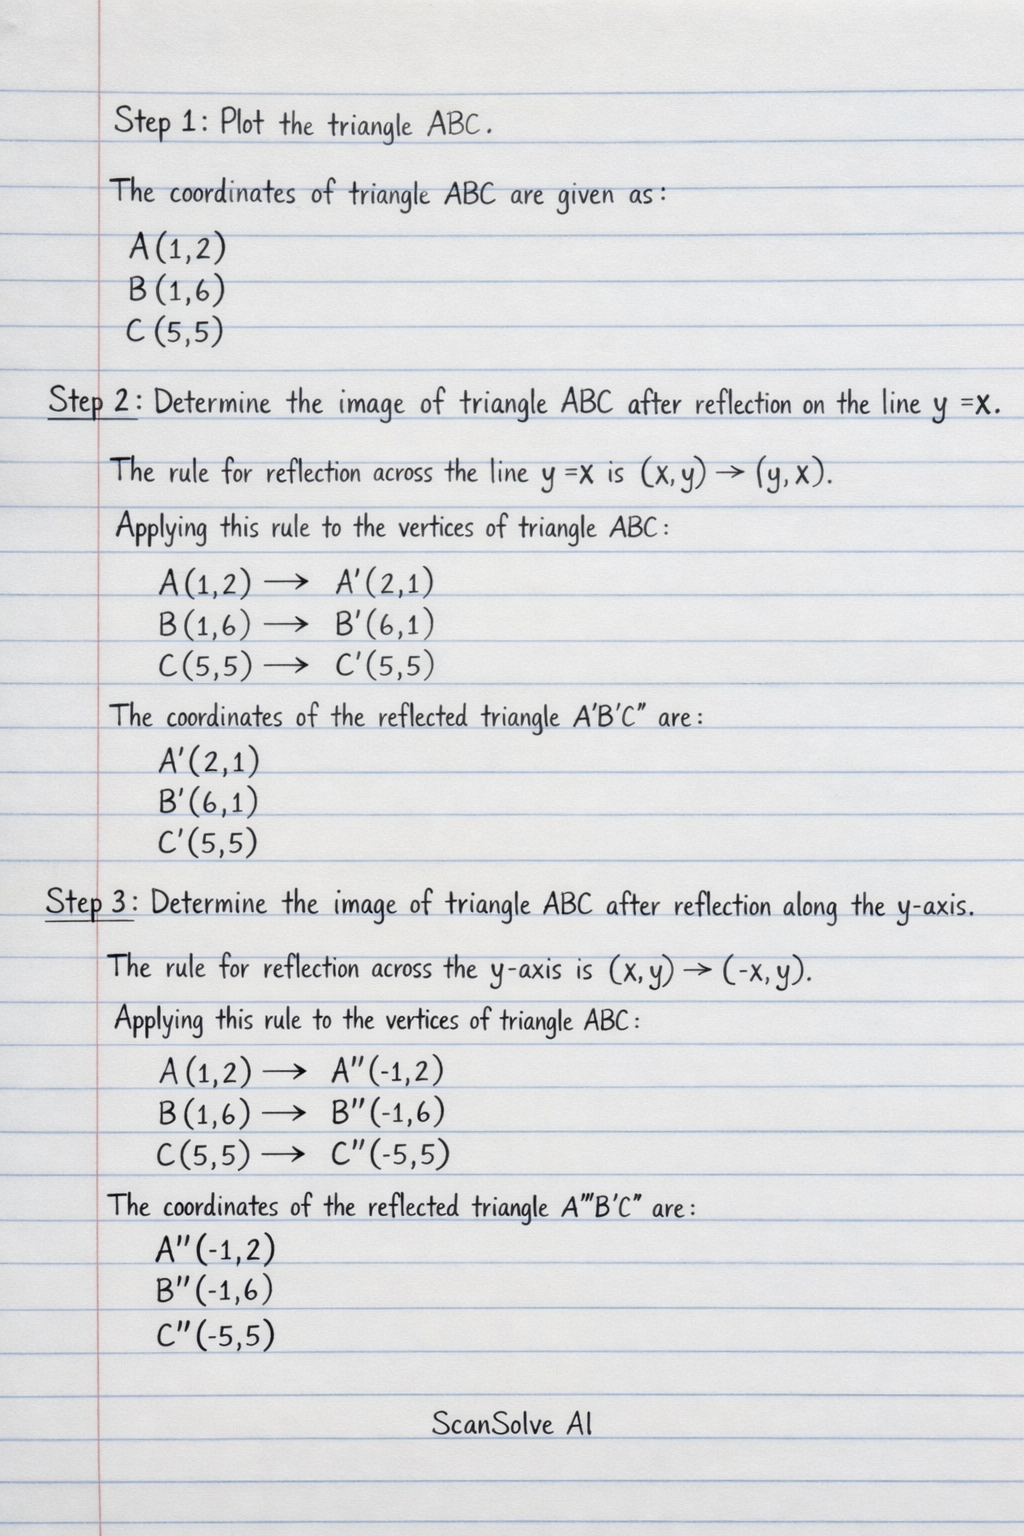 Step 1: Plot the triangle ABC.
The coordinates of triangle ABC are given as:
A(1,2)
B(1,6)
C(5,5)
Step 2: Determine the image of triangle ABC after reflection on the line y =x.
The rule for reflection across the line y =x is (x,y) → (y,x).
Applying this rule to the vertices of triangle ABC:
A(1,2) → A'(2,1)
B(1,6) → B'(6,1)
C(5,5) → C'(5,5)
The coordinates of the reflected triangle A'B'C" are:
A'(2,1)
B'(6,1)
C'(5,5)
Step 3: Determine the image of triangle ABC after reflection along the y-axis.
The rule for reflection across the y-axis is (x,y) → (-x,y).
Applying this rule to the vertices of triangle ABC:
A(1,2) → A"(-1,2)
B(1,6) → B"(-1,6)
C(5,5) → C"(-5,5)
The coordinates of the reflected triangle A"'B'C" are:
A"(-1,2)
B"(-1,6)
C"(-5,5)
ScanSolve AI